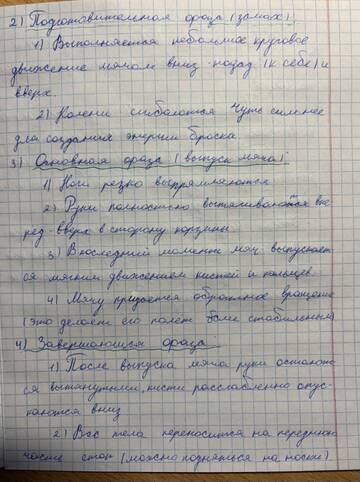 2) Подготовительная фаза (замах)
1) Выполняется небольшое круговое
движение мячом вниз-назад (к себе) и
вверх.
2) Колени сгибаются чуть сильнее
для создания энергии броска
3) Основная фаза (выпуск мяча)
1) Ноги резко выпрямляются
2) Руки полностью вытягиваются впе
ред-вверх в сторону корзины
3) В последний момент мяч выпускает-
ся мягким движением кистей и пальцев
4) Мячу придается обратное вращение
(это делает его полет более стабильным)
4) Завершающая фаза
1) После выпуска мяча руки остают-
ся вытянутыми, кисти расслабленно опус-
каются вниз
2) Вес тела переносится на переднюю
часть стоп (можно подняться на носки)